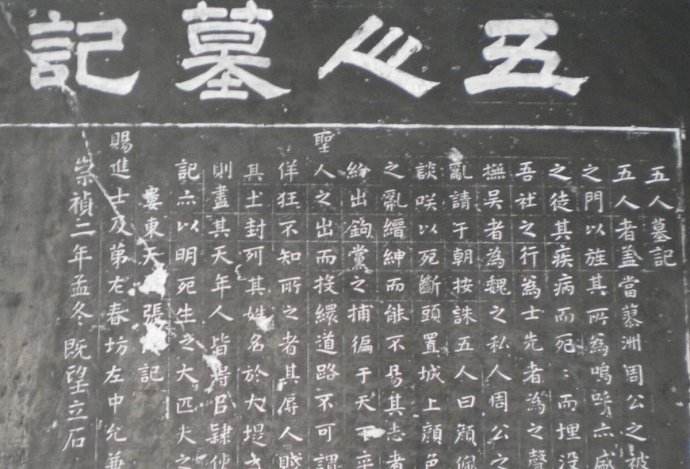 五人墓記
五人墓記
五人者蓋當蓼洲周公之被
之門以旌其所為嗚呼亦盛
之徒其疾病而死:而埋没
吾社之行為士先者為之聲
撫吳者為魏之私人周公之
亂請于朝按誅五人曰顏佩
談咲以死斷頭置城上顏色
之亂縉紳而能不易其志者
紛出鉤黨之捕徧于天下卒
聖人之出而投繯道路不可謂
佯狂不知所之者其辱人賤
其土封列其姓名於大堤之
則盡其天年人皆得以隸使
記亦以明死生之大匹夫之
婁東 張 記
賜進士及第右春坊左中允兼
崇禎二年孟冬既望立石